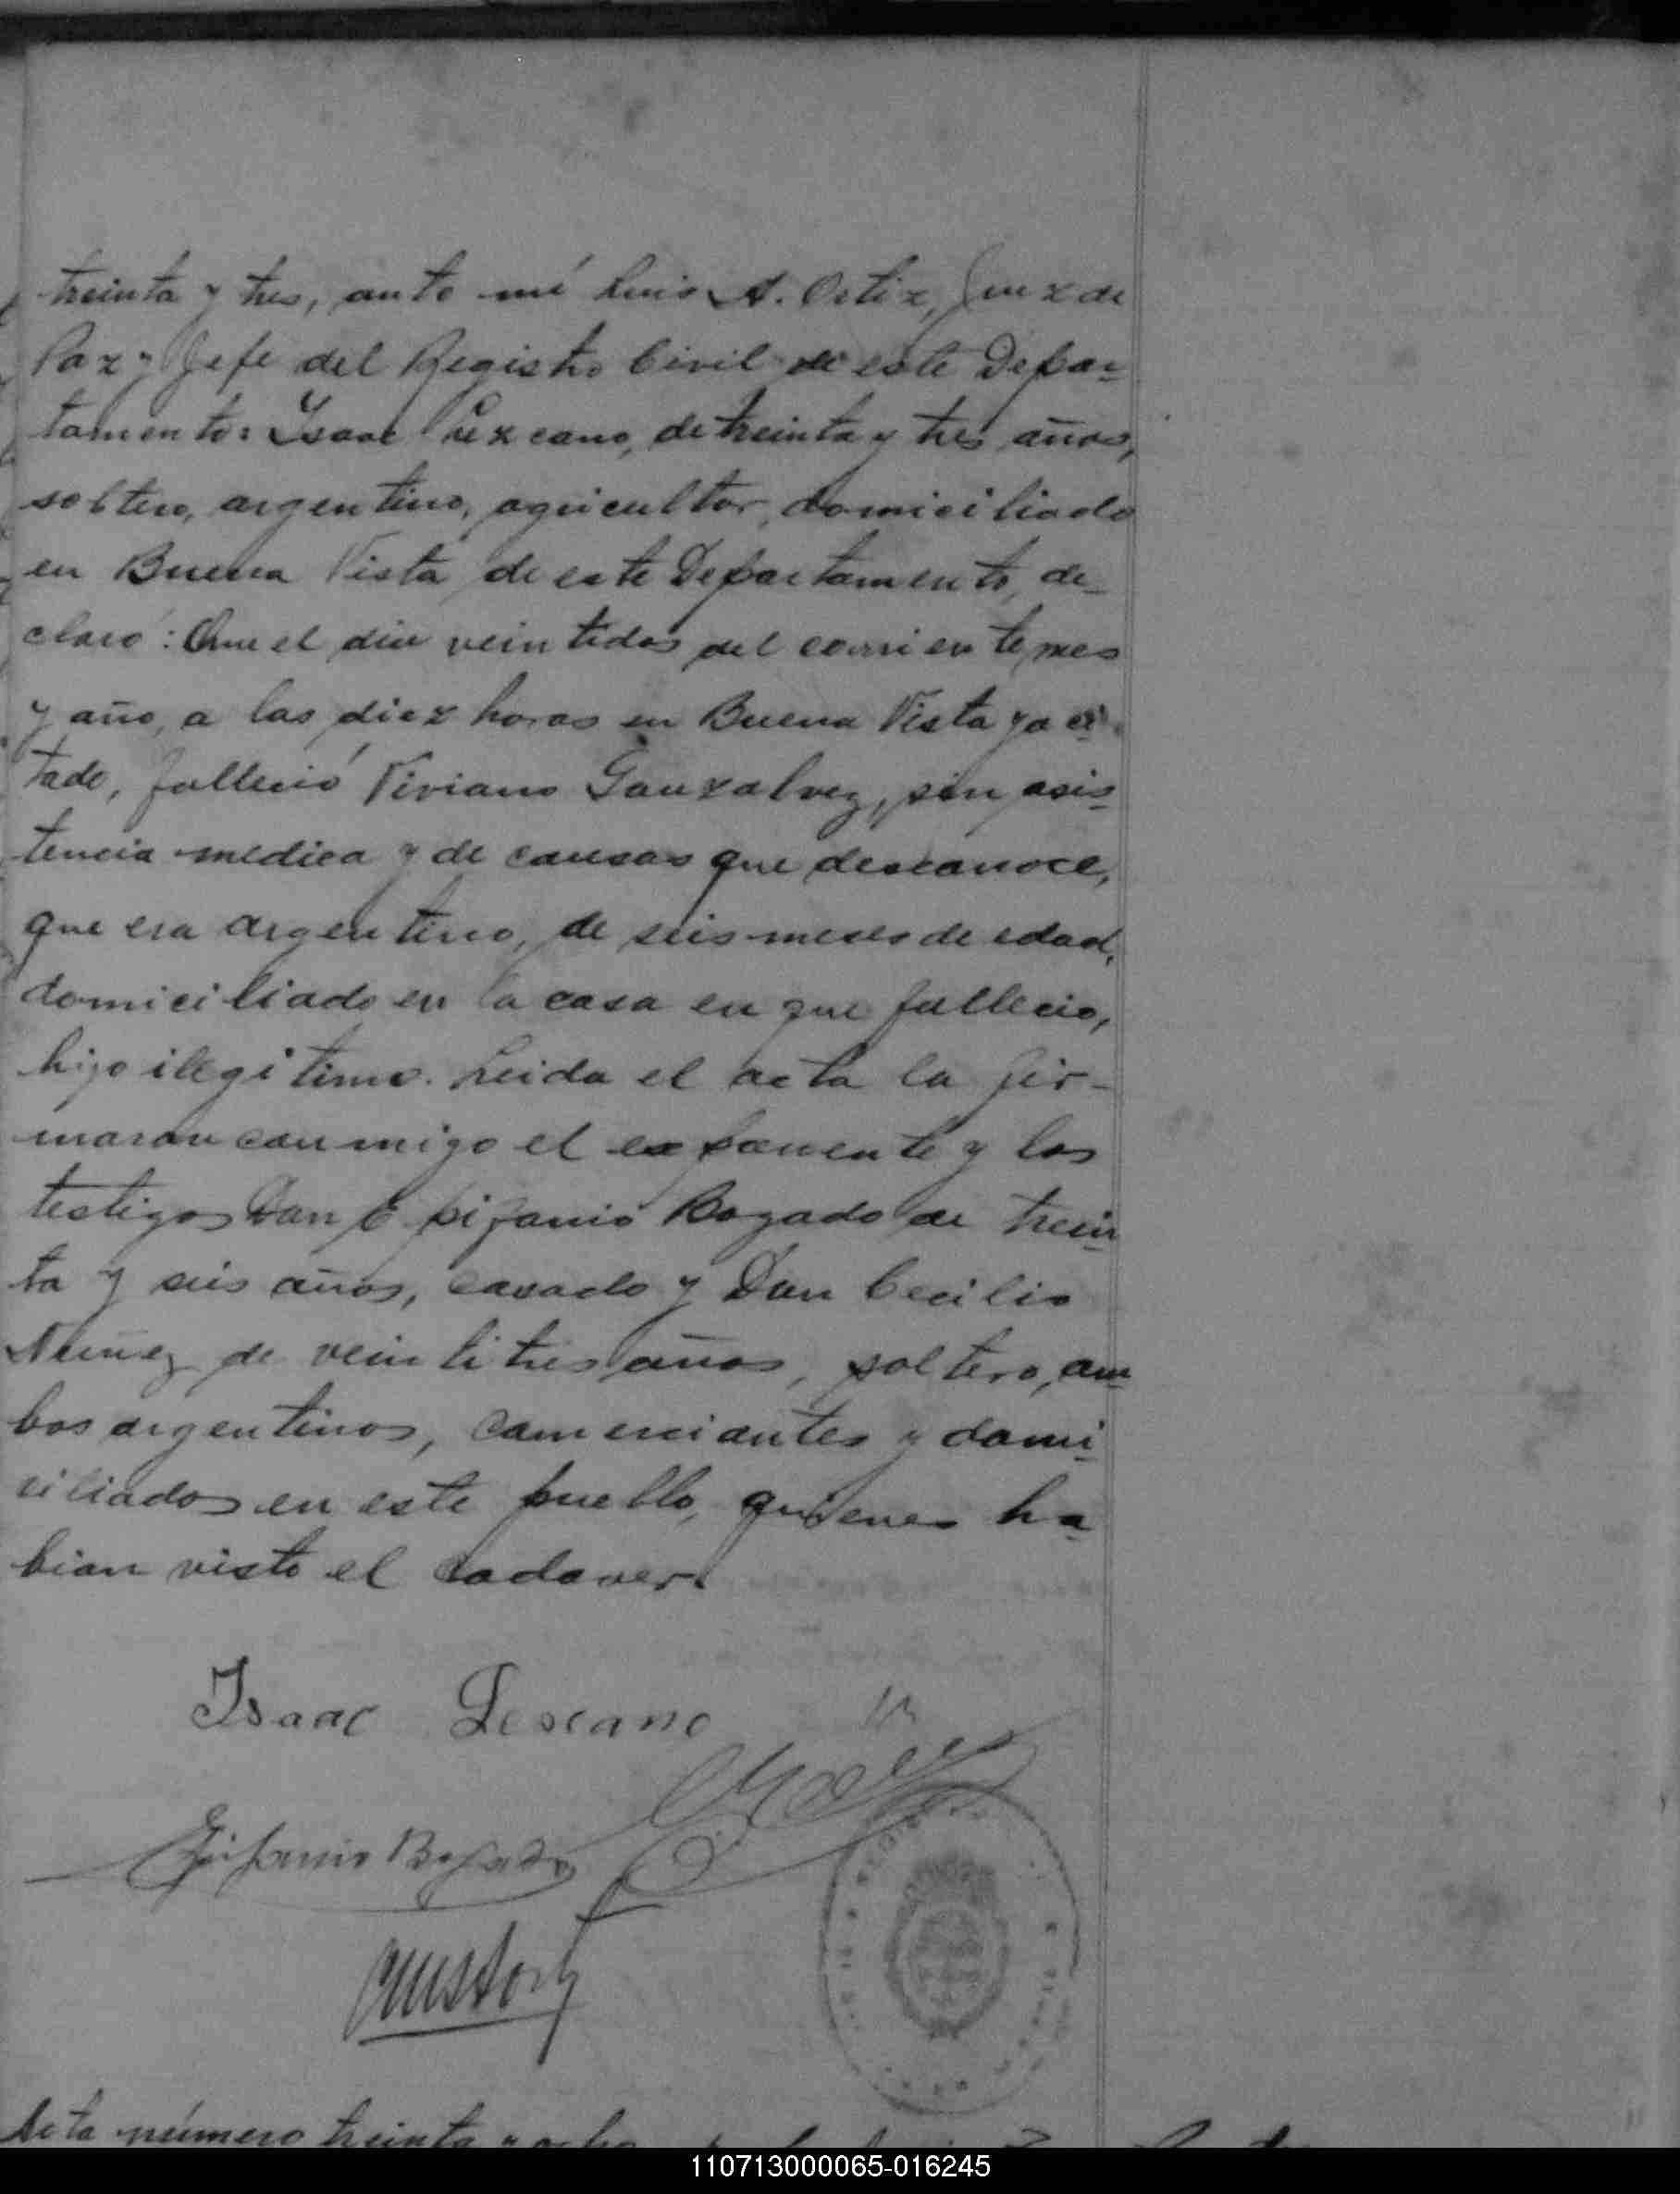 treinta y tres, ante mí Luis A. Ortiz, Juez de
Paz y Jefe del Registro Civil de este Depar-
tamento: Isaac Lezcano, de treinta y tres años,
soltero, argentino, agricultor, domiciliado
en Buena Vista de este Departamento, de-
claró: Que el dia veintidos del corriente mes
y año, a las diez horas en Buena Vista ya ci-
tado, falleció Viviano Gonzalvez, sin asis-
tencia medica y de causas que desconoce,
que era argentino, de seis meses de edad,
domiciliado en la casa en que fallecio,
hijo ilegitimo. Leida el acta la fir-
maron conmigo el exponente y los
testigos Don Epifanio Bogado de trein-
ta y seis años, casado y Don Cecilio
Nuñez de veintitres años, soltero, am-
bos argentinos, comerciantes y domi-
ciliados en este pueblo, quienes ha-
bian visto el cadaver.
Isaac Lescano
Epifanio Bogado
Acta número treinta y ocho
110713000065-016245